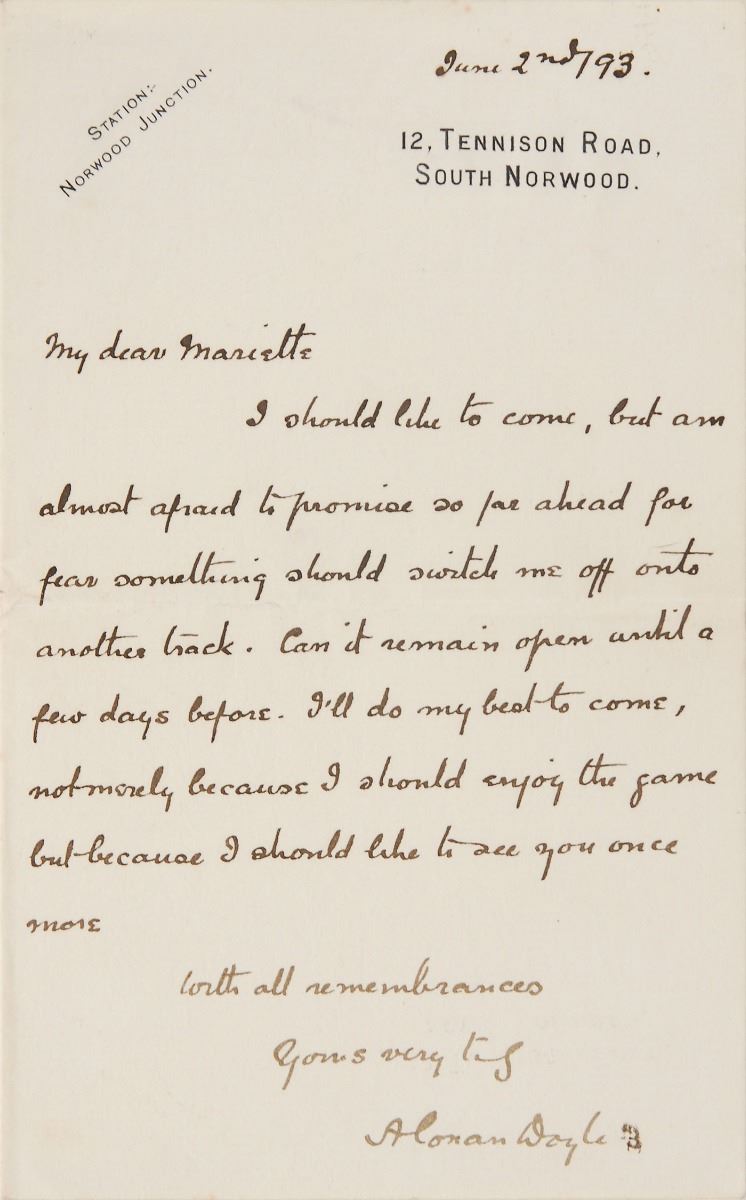 June 2nd/93.
STATION:-
NORWOOD JUNCTION.
12, TENNISON ROAD,
SOUTH NORWOOD.
My dear Mariette
I should like to come, but am
almost afraid to promise so far ahead for
fear something should switch me off onto
another track. Can it remain open until a
few days before. I'll do my best to come,
not merely because I should enjoy the game
but because I should like to see you once
more
With all remembrances
Yours very
A Conan Doyle